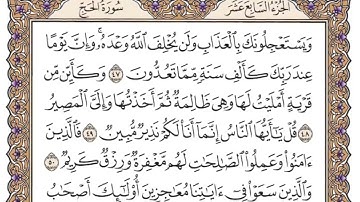 الجزء السابع عشر سورة الحج
ويستعجلونك بالعذاب ولن يخلف الله وعده وإن يوما
عند ربك كألف سنة مما تعدون ٤٧ وكأين من
قرية أمليت لها وهي ظالمة ثم أخذتها وإلي المصير
٤٨ قل يأيها الناس إنما أنا لكم نذير مبين ٤٩ فالذين
ءامنوا وعملوا الصلحت لهم مغفرة ورزق كريم ٥٠
والذين سعوا في ءايتنا معجزين أولئك أصحب